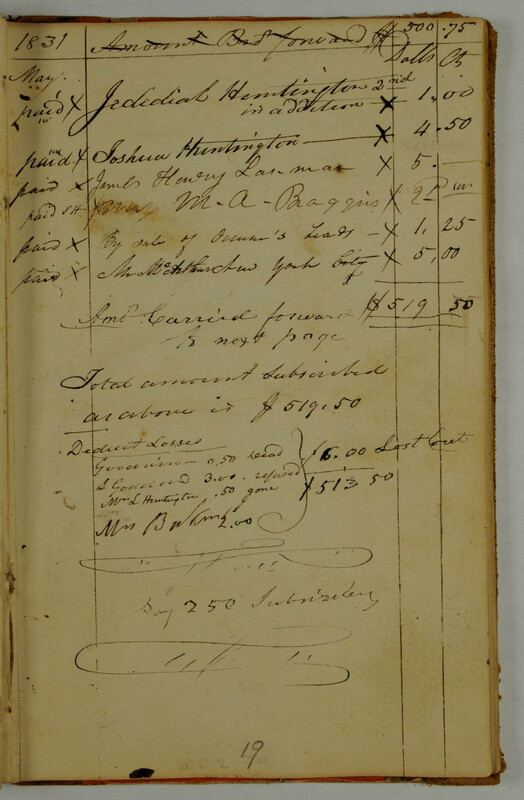 1831 Amount Brd forward $500.75
May. Dolls Cts
paid X Jedediah Huntington 2nd
in addition X 1.00
paid. X Joshua Huntington X 4.50
paid X James Henry X 5.
paid M-A- Baggis X 2
paid X By sale of Leads X 1,25
paid X Mr New York City X 5,00
Amd Carried forward $519 50
to next page
Total amount Subscribed
as above is $519.50
Deduct Losses
Goodwin 0,50 dead
S Goddard 3.00. refused
Mrs L Huntington .50 gone
$6.00 Lost Cut
$513 50
Mrs 2.00
Say 250 Subscribers
19